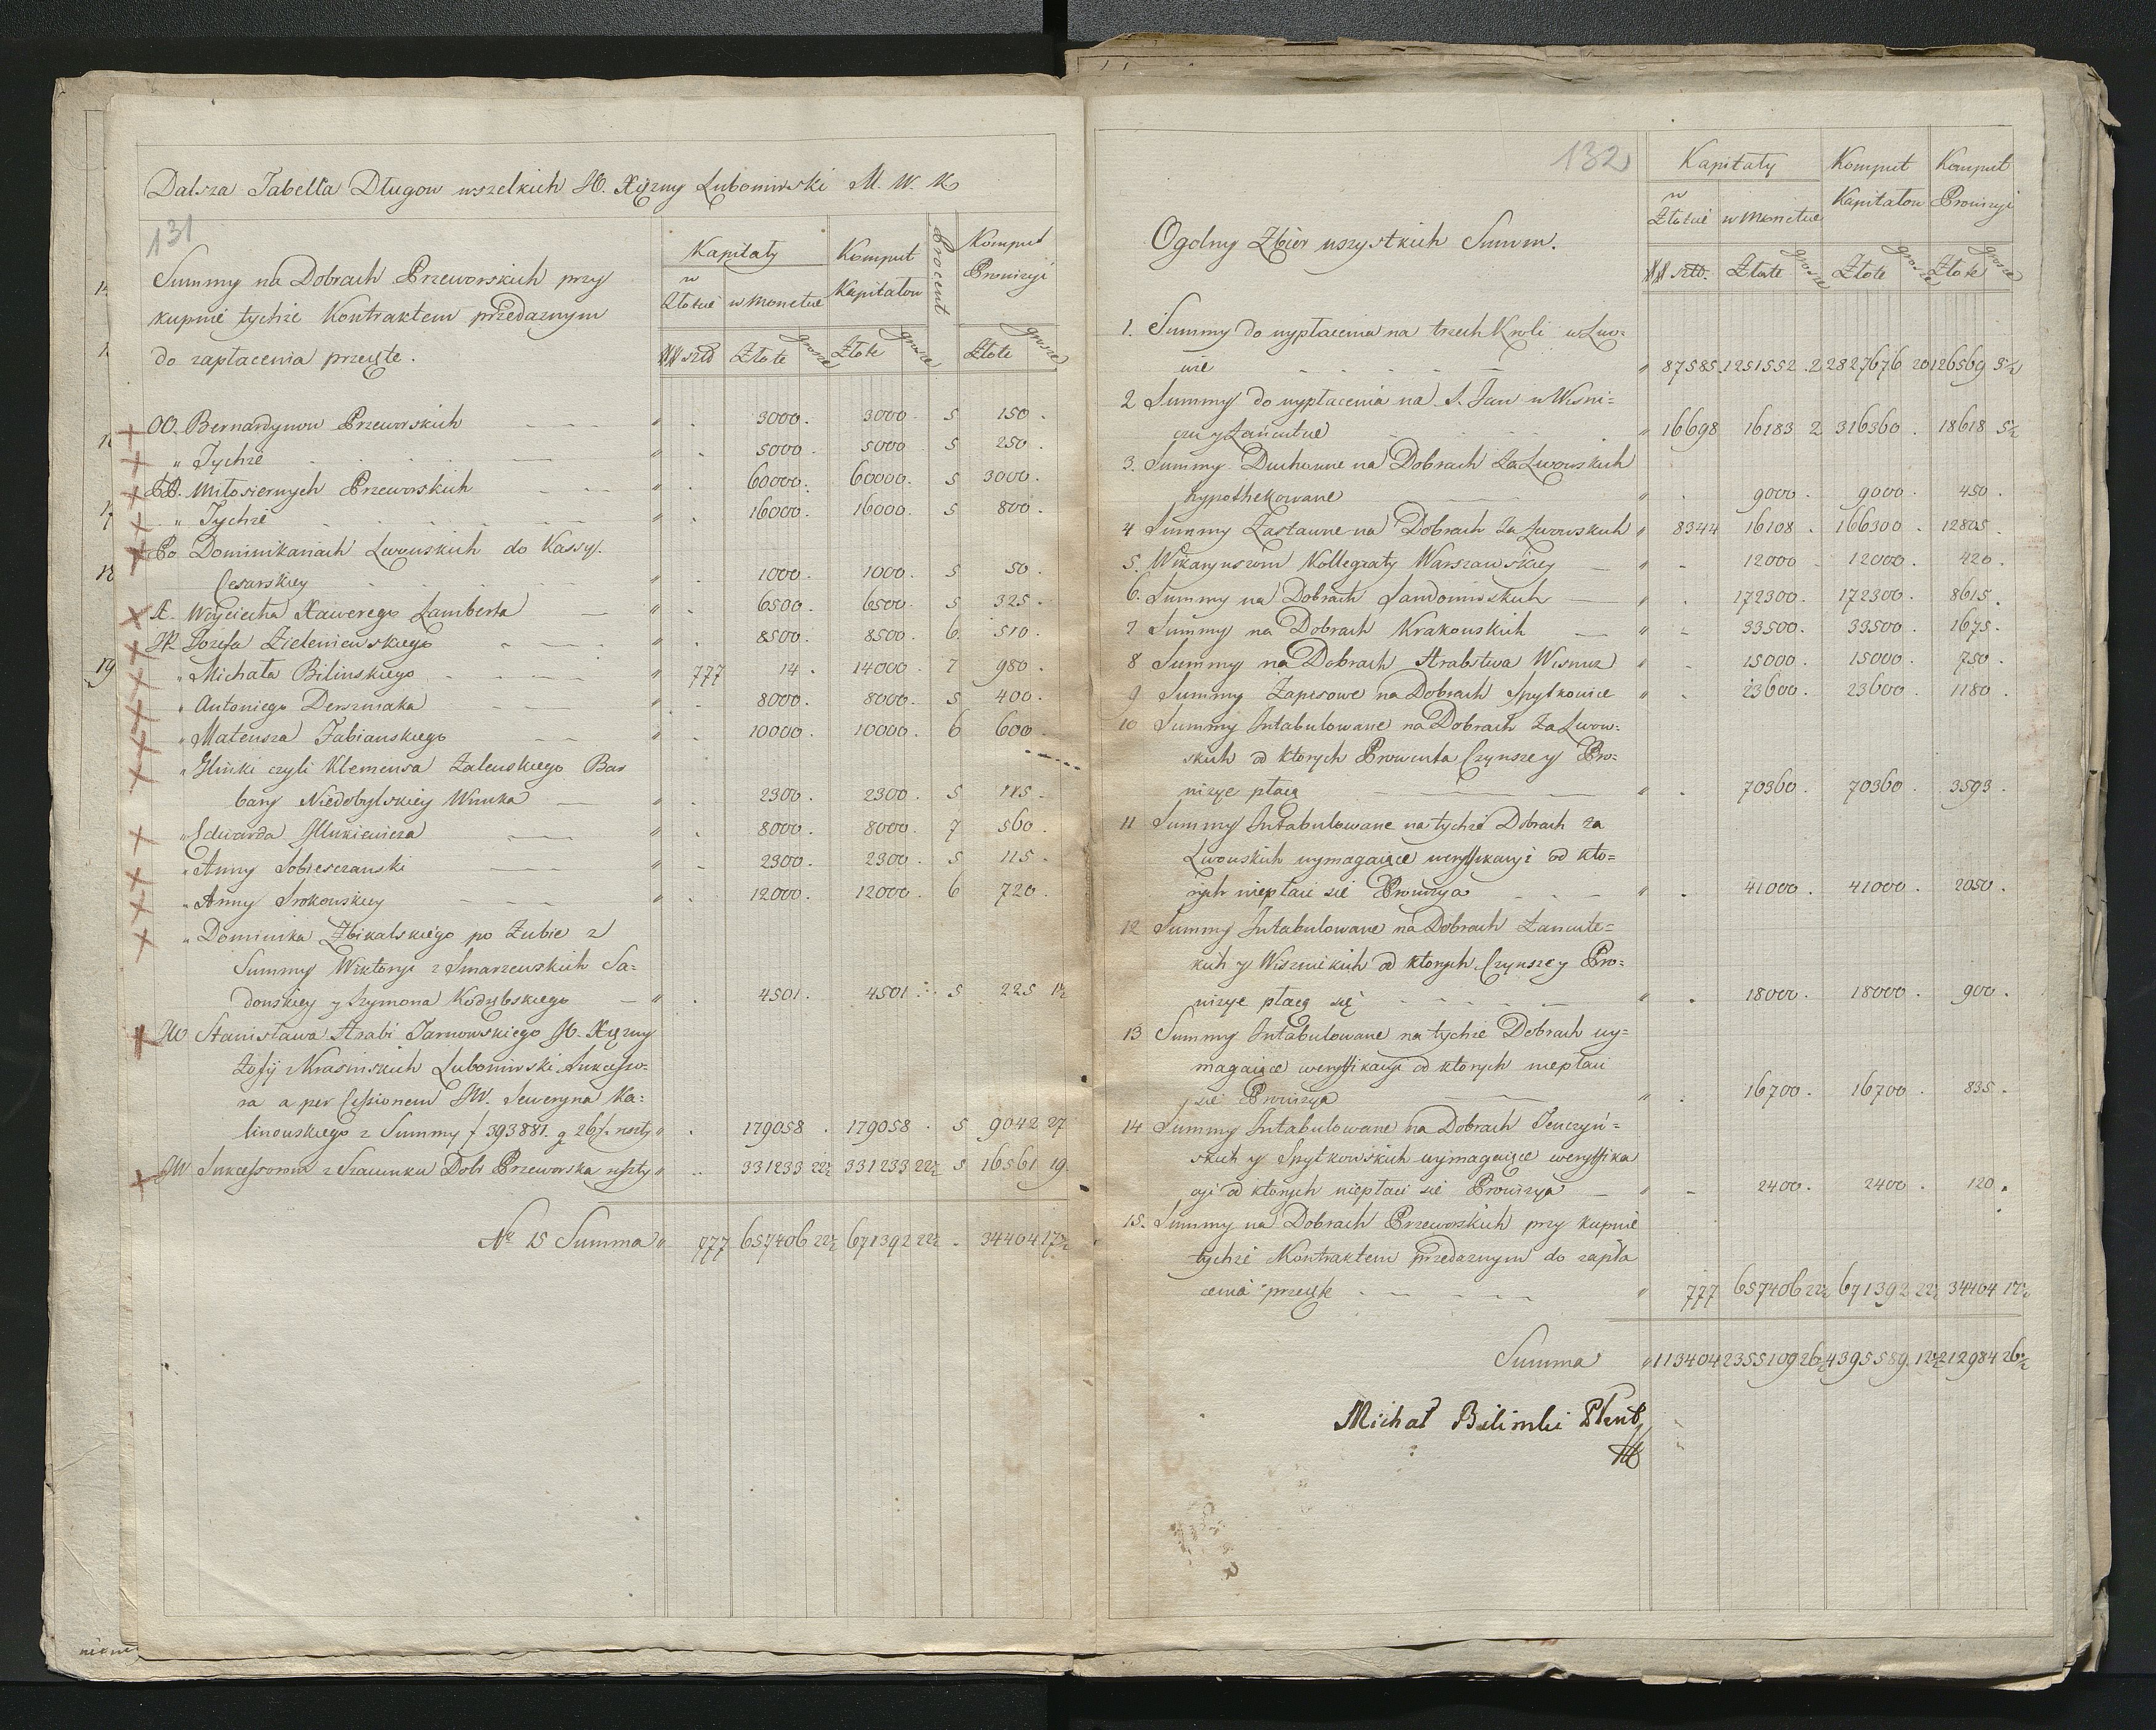 Dalsza Tabella Długow wszelkich JO. Xiężny Lubomirski M. W. K
131
Summy na Dobrach Przeworskich przy
kupnie tychże Kontraktem przedaznym
do zapłacenia przeięte.
Kapitały Komput Procent Komput
w Złocie w Monecie Kapitałow Prowizyi
## szto Złote grosze Złote grosze Złote grosze
OO. Bernardynow Przeworskich " . 3000. 3000. 5 150.
" Tychże " . 5000. 5000 5 250.
BB. Miłosiernych Przeworskich " . 60000. 60000. 5 3000.
" Tychże " . 16000. 16000. 5 800.
Po Dominikanach Lwowskich do Kassy
Cesarskiey " . 1000. 1000. 5 50.
X. Woyciecha Xawerego Lamberta " . 6500. 6500. 5 325.
JP. Jozefa Zieleniewskiego " . 8500. 8500. 6 510.
" Michała Bilinskiego " 777 14. 14000. 7 980.
" Antoniego Derszniaka " . 8000. 8000. 5 400.
" Mateusza Fabianskiego " . 10000. 10000. 6 600.
" Glinki czyli Klemensa Zaleuskiego Bar
bary Niedobylskiey Wnuka " . 2300. 2300. 5 115.
" Edwarda Glukiewicza " . 8000. 8000. 7 560.
" Anny Sobiesczanski " . 2300. 2300. 5 115.
" Anny Srokowskiey " . 12000. 12000. 6 720.
" Dominika Zbikalskiego po Zubie z
Summy Wiktoryi z Smarzewskich Sa=
dowskiey y Szymona Kodrębskiego " . 4501. 4501. 5 225 1½
JW Stanisława Hrabi Tarnowskiego JO. Xiężny
Zofij z Krasinskich Lubomirski Sukcesso=
ra a per Cessionem JW. Seweryna Ka=
linowskiego z Summy f 393881. g 26½. reszty " . 179058. 179058. 5 9042 27
JW. Sukcessorom z Szacunku Dobr Przeworska reszty " . 331233 22½ 331233 22½ 5 16561 19.
Nr 15 Summa " 777 657406 22½ 671392 22½ . 34404 17½
132
Kapitały Komput Komput
w Złocie w Monecie Kapitałow Prowizyi
Ogolny Zbior wszystkich Summ.
## szto. Złote grosze Złote grosze Złote grosze
1. Summy do wypłacenia na trzech Kroli w Lwo=
wie " 87585. 1251552. 2 2827676 20 126569 5½
2 Summy do wypłacenia na S. Jan w Wisni=
czu y Łańcutcie " 16698 16183 2 316360. 18618 5½
3. Summy Duchowne na Dobrach Za Lwowskich
hypothekowane " . 9000. 9000. 450.
4 Summy Zastawne na Dobrach Za Lwowskich " 8344 16108. 166300. 12805
5. Wikaryuszom Kollegiaty Warszawskiey " . 12000 12000. 420.
6. Summy na Dobrach Sandomirskich " . 172300. 172300. 8615.
7 Summy na Dobrach Krakowskich " . 33500. 33500. 1675.
8 Summy na Dobrach Hrabstwa Wisnicz " . 15000. 15000. 750.
9 Summy Zapisowe na Dobrach Spytkowice " . 23600. 23600. 1180.
10 Summy Intabulowane na Dobrach Za Lwow=
skich od ktorych Prowenta Czynsze y Pro=
wizye płacą " . 70360. 70360. 3593.
11 Summy Intabulowane na tychże Dobrach za
Lwowskich wymagaiące weryfikacyi od kto=
rych niepłaci się Prowizya " . 41000. 41000. 2050.
12 Summy Intabulowane na Dobrach Łancute=
kich y Wiśnickich od ktorych Czynsze y Pro=
wizye płacą się " . 18000. 18000. 900.
13 Summy Intabulowane na tychże Dobrach wy=
magaiące weryfikacyi od ktorych niepłaci
się Prowizya " . 16700. 16700. 835.
14 Summy Intabulowane na Dobrach Tenczyń=
skich y Spytkowskich wymagaiące weryffika
cyi od ktorych niepłaci się Prowizya " . 2400. 2400. 120.
15. Summy na Dobrach Przeworskich przy kupnie
tychże Kontraktem przedaznym do zapła
cenia przeięte " 777 657406 22½ 671392 22½ 34404 17½
Summa " 113404 2355109 26½ 4395589. 12½ 212984 26½
Michał Bilinski